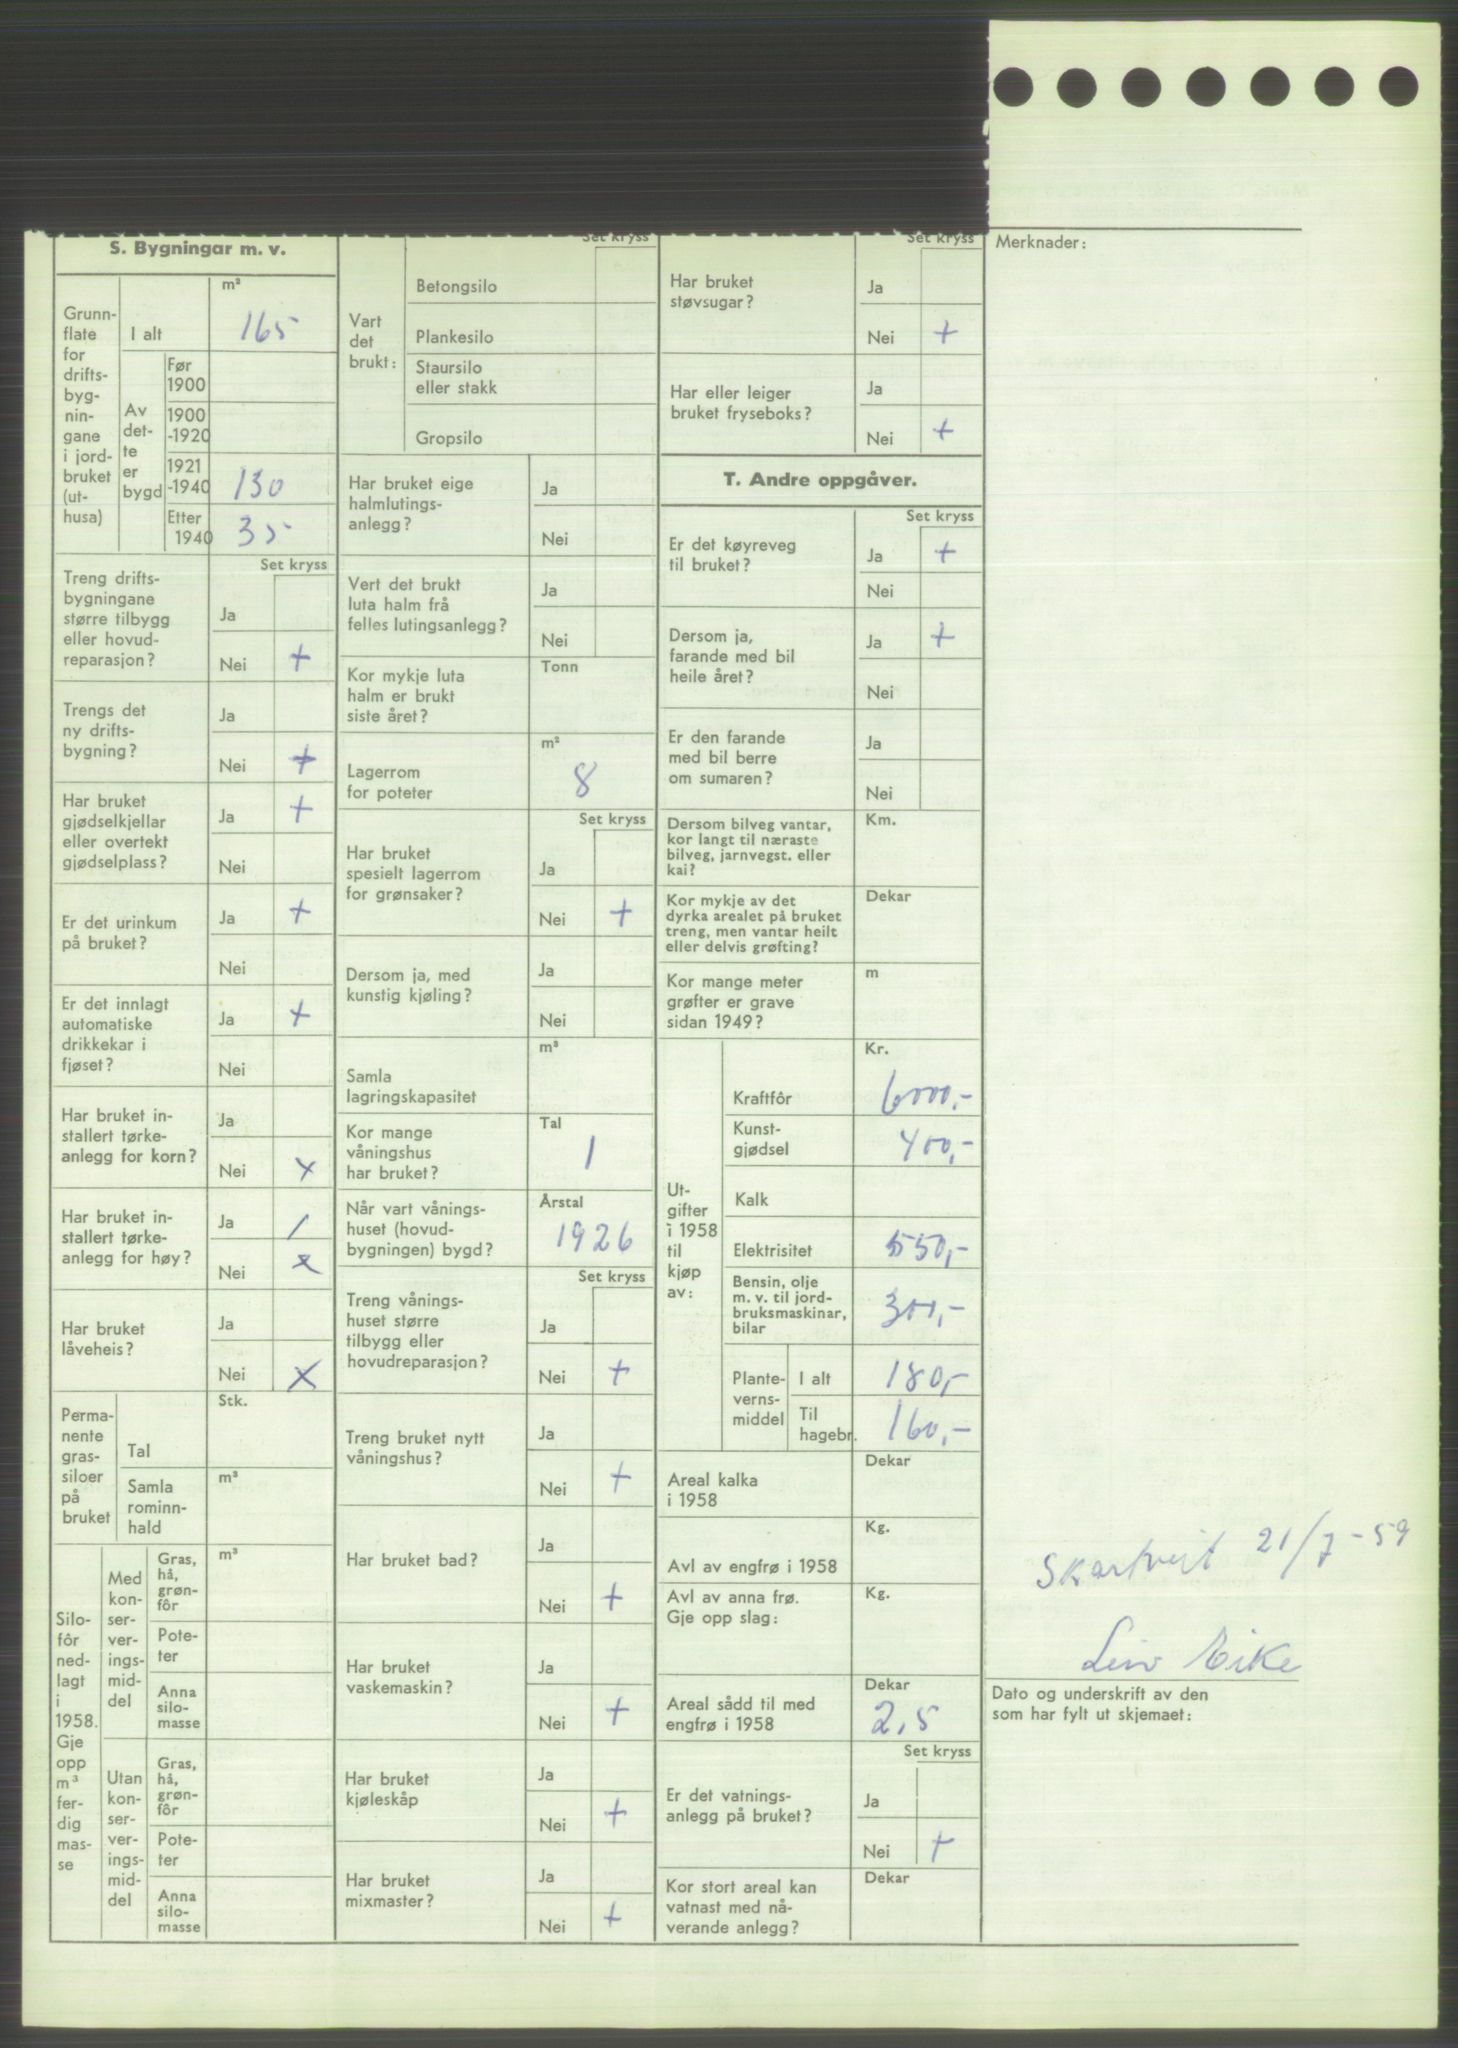 S. Bygningar m. v.
Grunn-
flate
for
drifts-
byg-
nin-
gane
i jord-
bruket
(ut-
husa)
m²
I alt 165
Av
det-
te
er
bygd
Før
1900
1900
-1920
1921
-1940 130
Etter
1940 35
Set kryss
Treng drifts-
bygningane
større tilbygg
eller hovud-
reparasjon?
Ja
Nei +
Trengs det
ny drifts-
bygning?
Ja
Nei +
Har bruket
gjødselkjellar
eller overtekt
gjødselplass?
Ja +
Nei
Er det urinkum
på bruket?
Ja +
Nei
Er det innlagt
automatiske
drikkekar i
fjøset?
Ja +
Nei
Har bruket in-
stallert tørke-
anlegg for korn?
Ja
Nei x
Har bruket in-
stallert tørke-
anlegg for høy?
Ja /
Nei x
Har bruket
låveheis?
Ja
Nei X
Perma-
nente
gras-
siloer
på
bruket
Stk.
Tal
m³
Samla
rominn-
hald
Silo-
fôr
ned-
lagt
i
1958.
Gje
opp
m³
fer-
dig
mas-
se
Med
kon-
ser-
ver-
ings-
mid-
del
m³
Gras,
hå,
grøn-
fôr
Pote-
ter
Anna
silo-
masse
Utan
kon-
ser-
ver-
ings-
mid-
del
Gras,
hå,
grøn-
fôr
Pote-
ter
Anna
silo-
masse
Set kryss
Vart
det
brukt:
Betongsilo
Plankesilo
Staursilo
eller stakk
Gropsilo
Har bruket eige
halmlutings-
anlegg?
Ja
Nei
Vert det brukt
luta halm frå
felles lutingsanlegg?
Ja
Nei
Kor mykje luta
halm er brukt
siste året?
Tonn
Lagerrom
for poteter
m²
8
Set kryss
Har bruket
spesielt lagerrom
for grønsaker?
Ja
Nei +
Dersom ja, med
kunstig kjøling?
Ja
Nei
Samla
lagringskapasitet
m³
Kor mange
våningshus
har bruket?
Tal
1
Når vart vånings-
huset (hovud-
bygningen) bygd?
Årstal
1926
Set kryss
Treng vånings-
huset større
tilbygg eller
hovudreparasjon?
Ja
Nei +
Treng bruket nytt
våningshus?
Ja
Nei +
Har bruket bad?
Ja
Nei +
Har bruket
vaskemaskin?
Ja
Nei +
Har bruket
kjøleskåp
Ja
Nei +
Har bruket
mixmaster?
Ja
Nei +
Set kryss
Har bruket
støvsugar?
Ja
Nei +
Har eller leiger
bruket fryseboks?
Ja
Nei +
T. Andre oppgåver.
Set kryss
Er det køyreveg
til bruket?
Ja +
Nei
Dersom ja,
farande med bil
heile året?
Ja +
Nei
Er den farande
med bil berre
om sumaren?
Ja
Nei
Dersom bilveg vantar,
kor langt til næraste
bilveg, jarnvegst. eller
kai?
Km.
Kor mykje av det
dyrka arealet på bruket
treng, men vantar heilt
eller delvis grøfting?
Dekar
Kor mange meter
grøfter er grave
sidan 1949?
m
Ut-
gifter
i 1958
til
kjøp
av:
Kr.
Kraftfôr 6000,-
Kunst-
gjødsel 400,-
Kalk
Elektrisitet 550,-
Bensin, olje
m. v. til jord-
bruksmaskinar,
bilar 300,-
Plante-
verns-
middel
I alt 180,-
Til
hagebr. 160,-
Areal kalka
i 1958
Dekar
Avl av engfrø i 1958
Kg.
Avl av anna frø.
Gje opp slag:
Kg.
Areal sådd til med
engfrø i 1958
Dekar
2,5
Set kryss
Er det vatnings-
anlegg på bruket?
Ja
Nei +
Kor stort areal kan
vatnast med nå-
verande anlegg?
Dekar
Merknader:
Skartveit 21/7-59
Liv Eike
Dato og underskrift av den
som har fylt ut skjemaet: